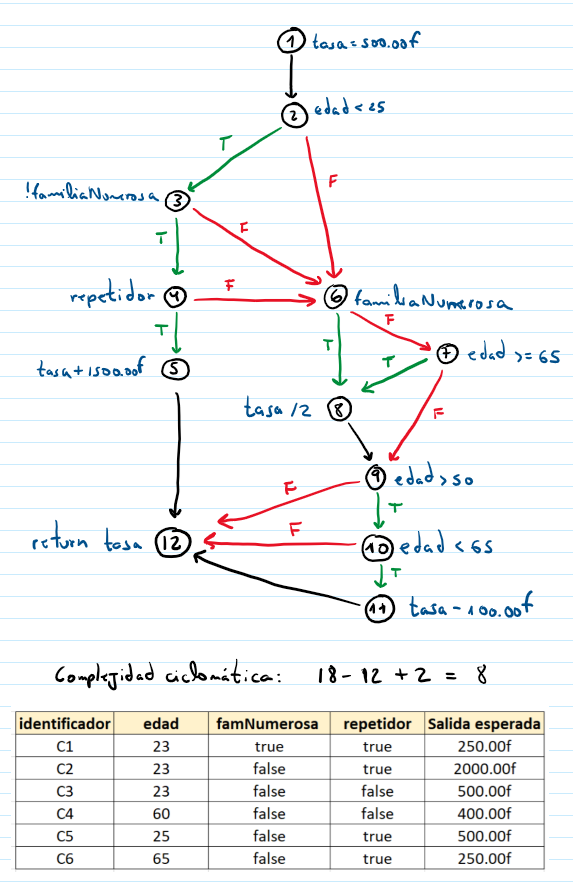 1 tasa = 500.00f
2 edad < 25
T
F
!familiaNumerosa 3
T
F
repetidor 4
F
6 familiaNumerosa
T
T
F
T
7 edad >= 65
tasa + 1500.00f 5
tasa / 2 8
F
9 edad > 50
F
T
return tasa 12
F
10 edad < 65
T
11 tasa - 100.00f
Complejidad ciclomática: 18 - 12 + 2 = 8
identificador edad famNumerosa repetidor Salida esperada
C1 23 true true 250.00f
C2 23 false true 2000.00f
C3 23 false false 500.00f
C4 60 false false 400.00f
C5 25 false true 500.00f
C6 65 false true 250.00f